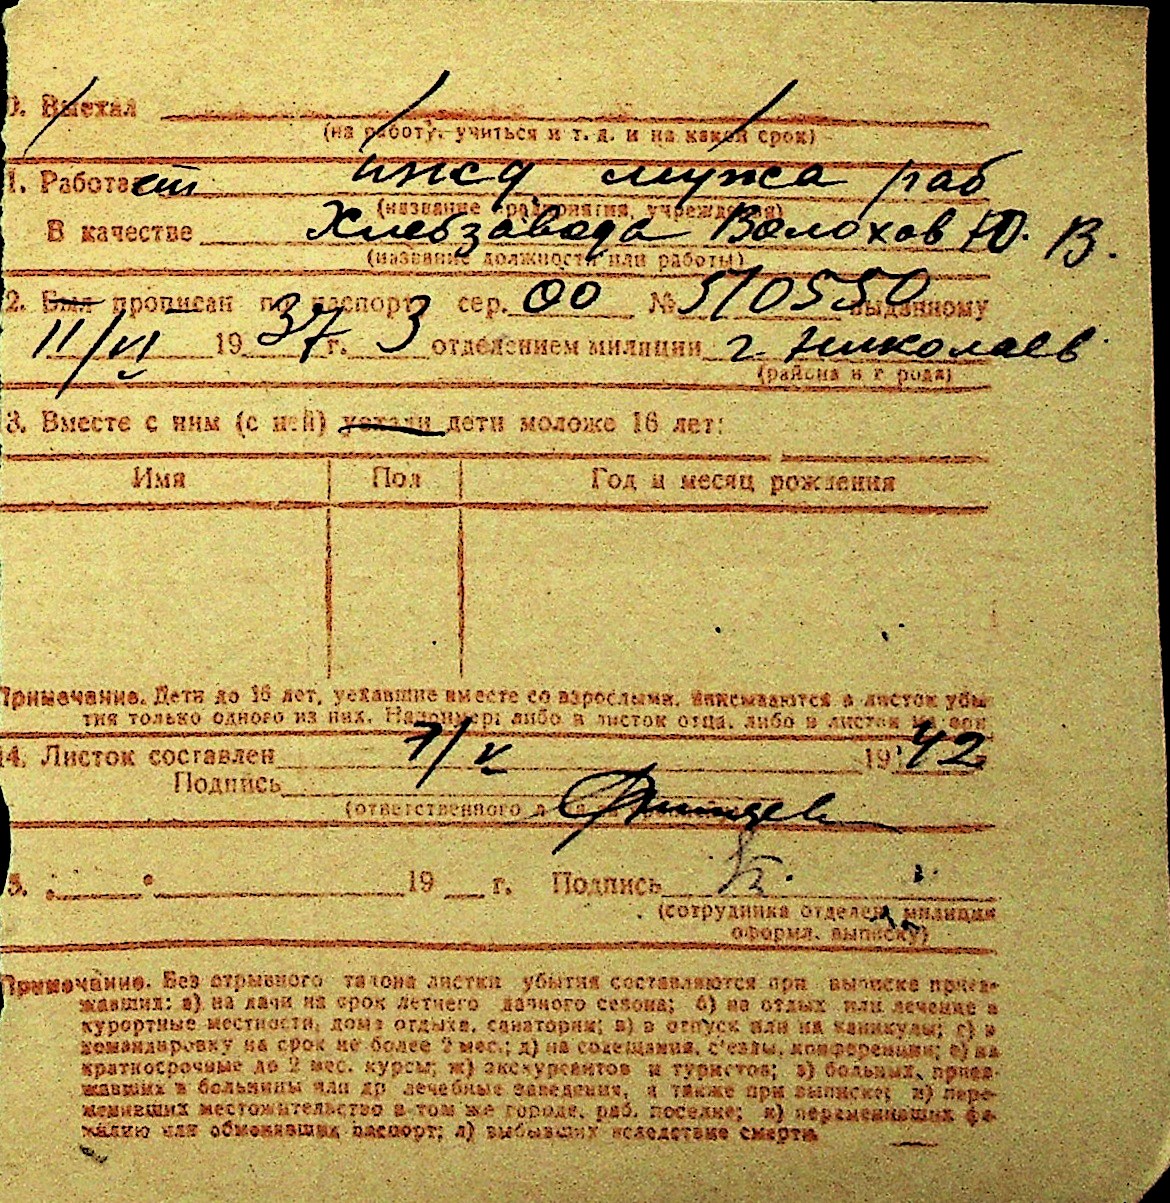 0. Выехал
(на работу, учиться и т. д. и на какой срок)
1. Работает ижд мужа раб
(название предприятия, учреждения)
В качестве Хлебзавода Волохов Ю. В.
(название должности или работы)
2. Был прописан по паспорту сер. ОО № 510550 выданному
11/VI 1937 г. 3 отделением милиции г. Николаев
(района и города)
3. Вместе с ним (с ней) уехали дети моложе 16 лет:
Имя Пол Год и месяц рождения
Примечание. Дети до 16 лет, уехавшие вместе со взрослыми, вписываются в листок убы-
тия только одного из них. Например: либо в листок отца, либо в листок
14. Листок составлен 7/V 1942
Подпись
(ответственного
5. 19 г. Подпись
(сотрудника отделен. милиции
оформл. выписку)
Примечание. Без отрывного талона листки убытия составляются при выписке приез-
жавших: а) на дачи на срок летнего дачного сезона; б) на отдых или лечение в
курортные местности, дома отдыха, санатории; в) в отпуск или на каникулы; г) в
командировку на срок не более 2 мес.; д) на совещания, с'езды, конференции; е) на
краткосрочные до 2 мес. курсы; ж) экскурсантов и туристов; з) больных, приез-
жавших в больницы или др лечебные заведения, а также при выписке; и) пере-
менивших местожительство в том же городе, раб. поселке; к) переменивших фа-
милию или обменявших паспорт; л) выбывших вследствие смерти.